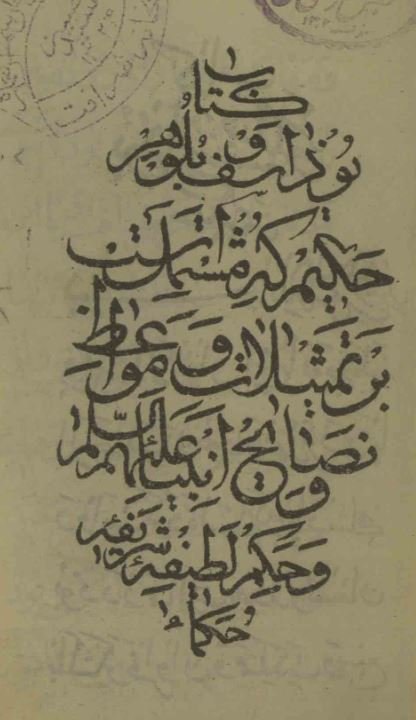 كتاب
بُوذاسف و بلوهر
حَكيم كه مُشتمل است
بَر تمثيلات وَ مَواعظ
و نَصَايح اَنبياء عَليهم السّلام
وَ حِكَم لَطيفه شريفه
حُكماء